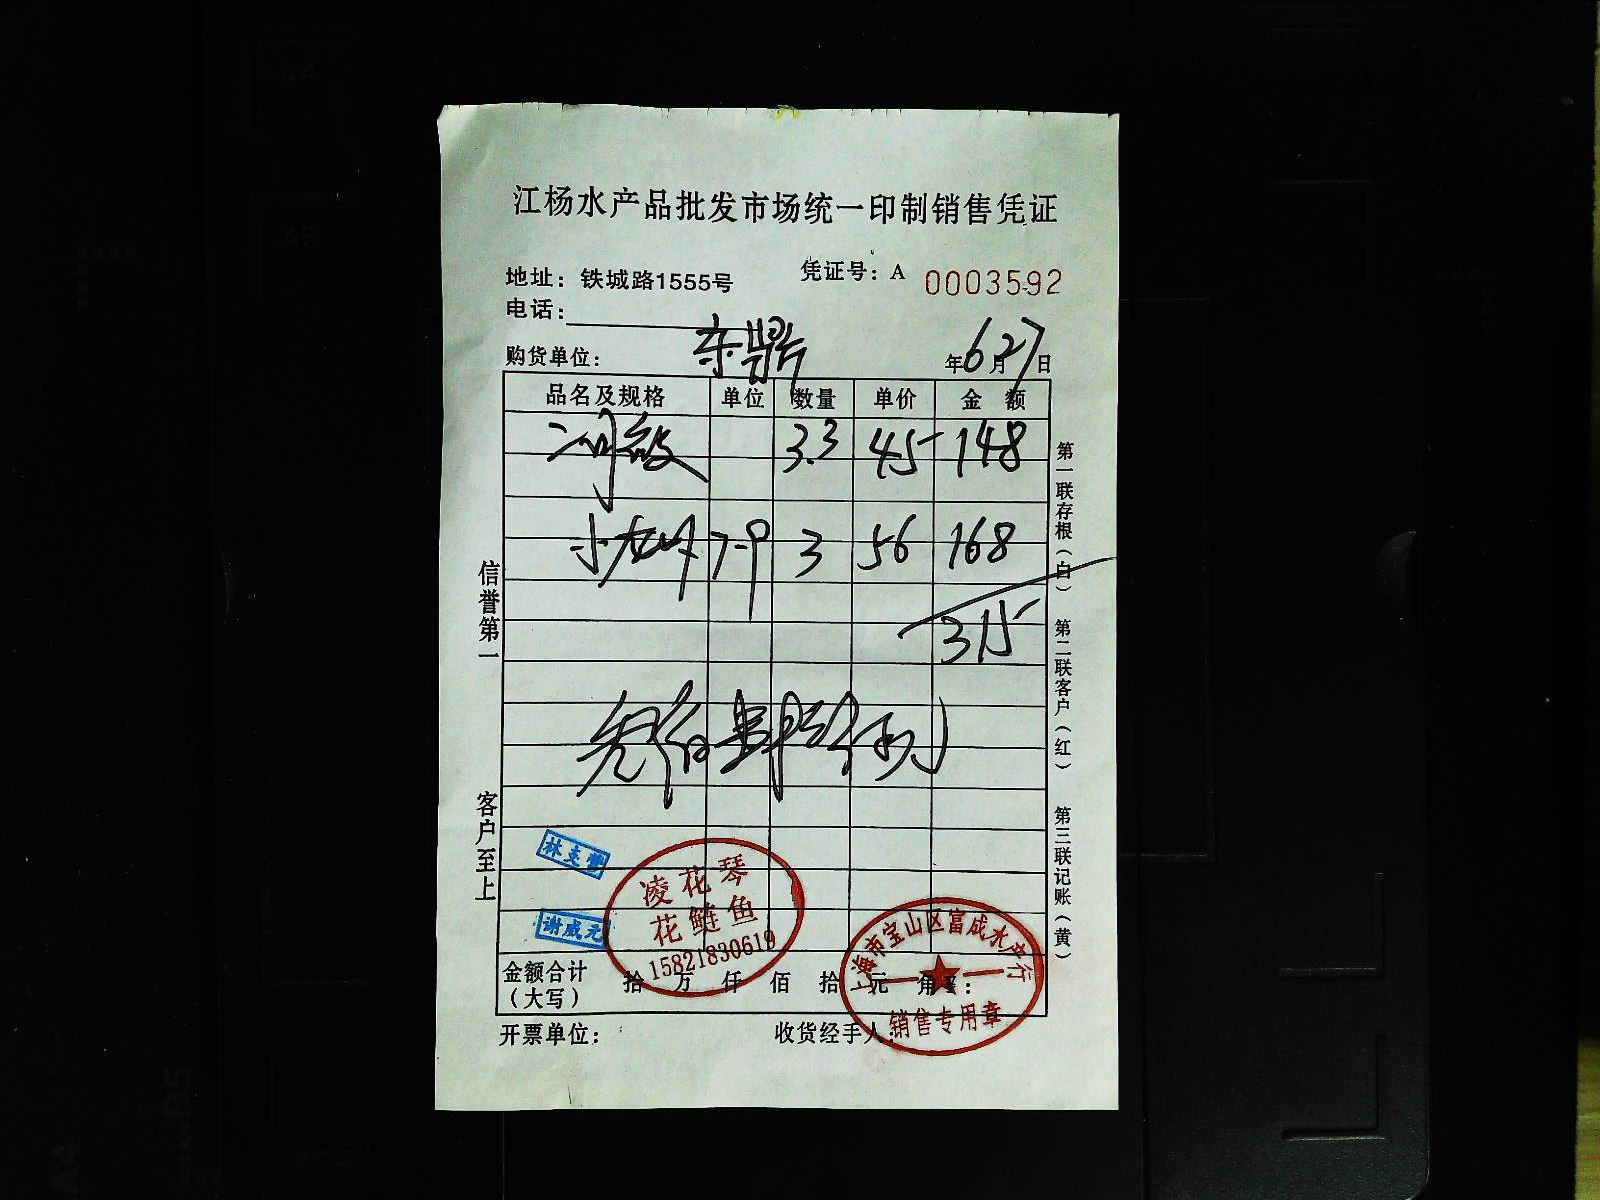 江杨水产品批发市场统一印制销售凭证
地址：铁城路1555号
凭证号：A 0003592
电话：
购货单位：东鼎
年6月27日
品名及规格 单位 数量 单价 金额
3.3 45 148
小龙虾 7-9 3 56 168
315
信誉第一
客户至上
第一联存根（白）
第二联客户（红）
第三联记账（黄）
谢成元
凌花琴
花鲢鱼
15821830619
上海市宝山区富成水产行
销售专用章
金额合计（大写） 拾 万 仟 佰 拾 元 角 ¥：
开票单位：
收货经手人：